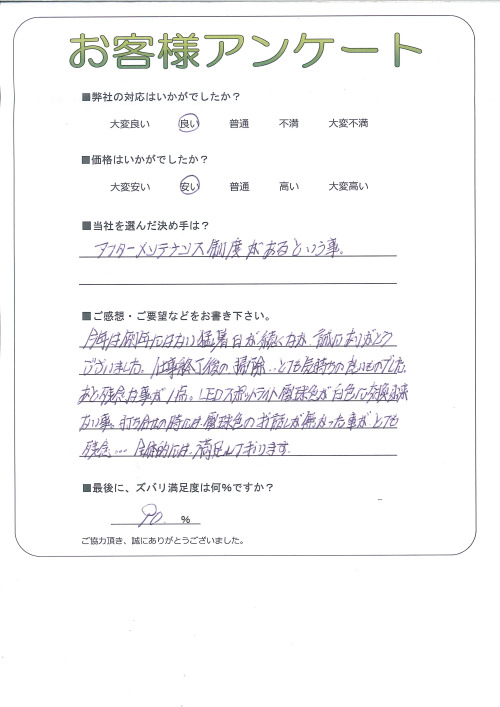 お客様アンケート
■弊社の対応はいかがでしたか？
大変良い 良い 普通 不満 大変不満
■価格はいかがでしたか？
大変安い 安い 普通 高い 大変高い
■当社を選んだ決め手は？
アフターメンテナンス制度があるという事。
■ご感想・ご要望などをお書き下さい。
今年は例年にはない猛暑日が続くなか、誠にありがとう
ございました。仕事終了後の掃除..とても気持ちの良いものでした。
あと残念な事が1点。LEDスポットライト電球色が白色に交換出来
ない事。打ち合せの時には電球色のお話しが無かった事がとても
残念... 全体的には満足しております。
■最後に、ズバリ満足度は何%ですか？
90 %
ご協力頂き、誠にありがとうございました。